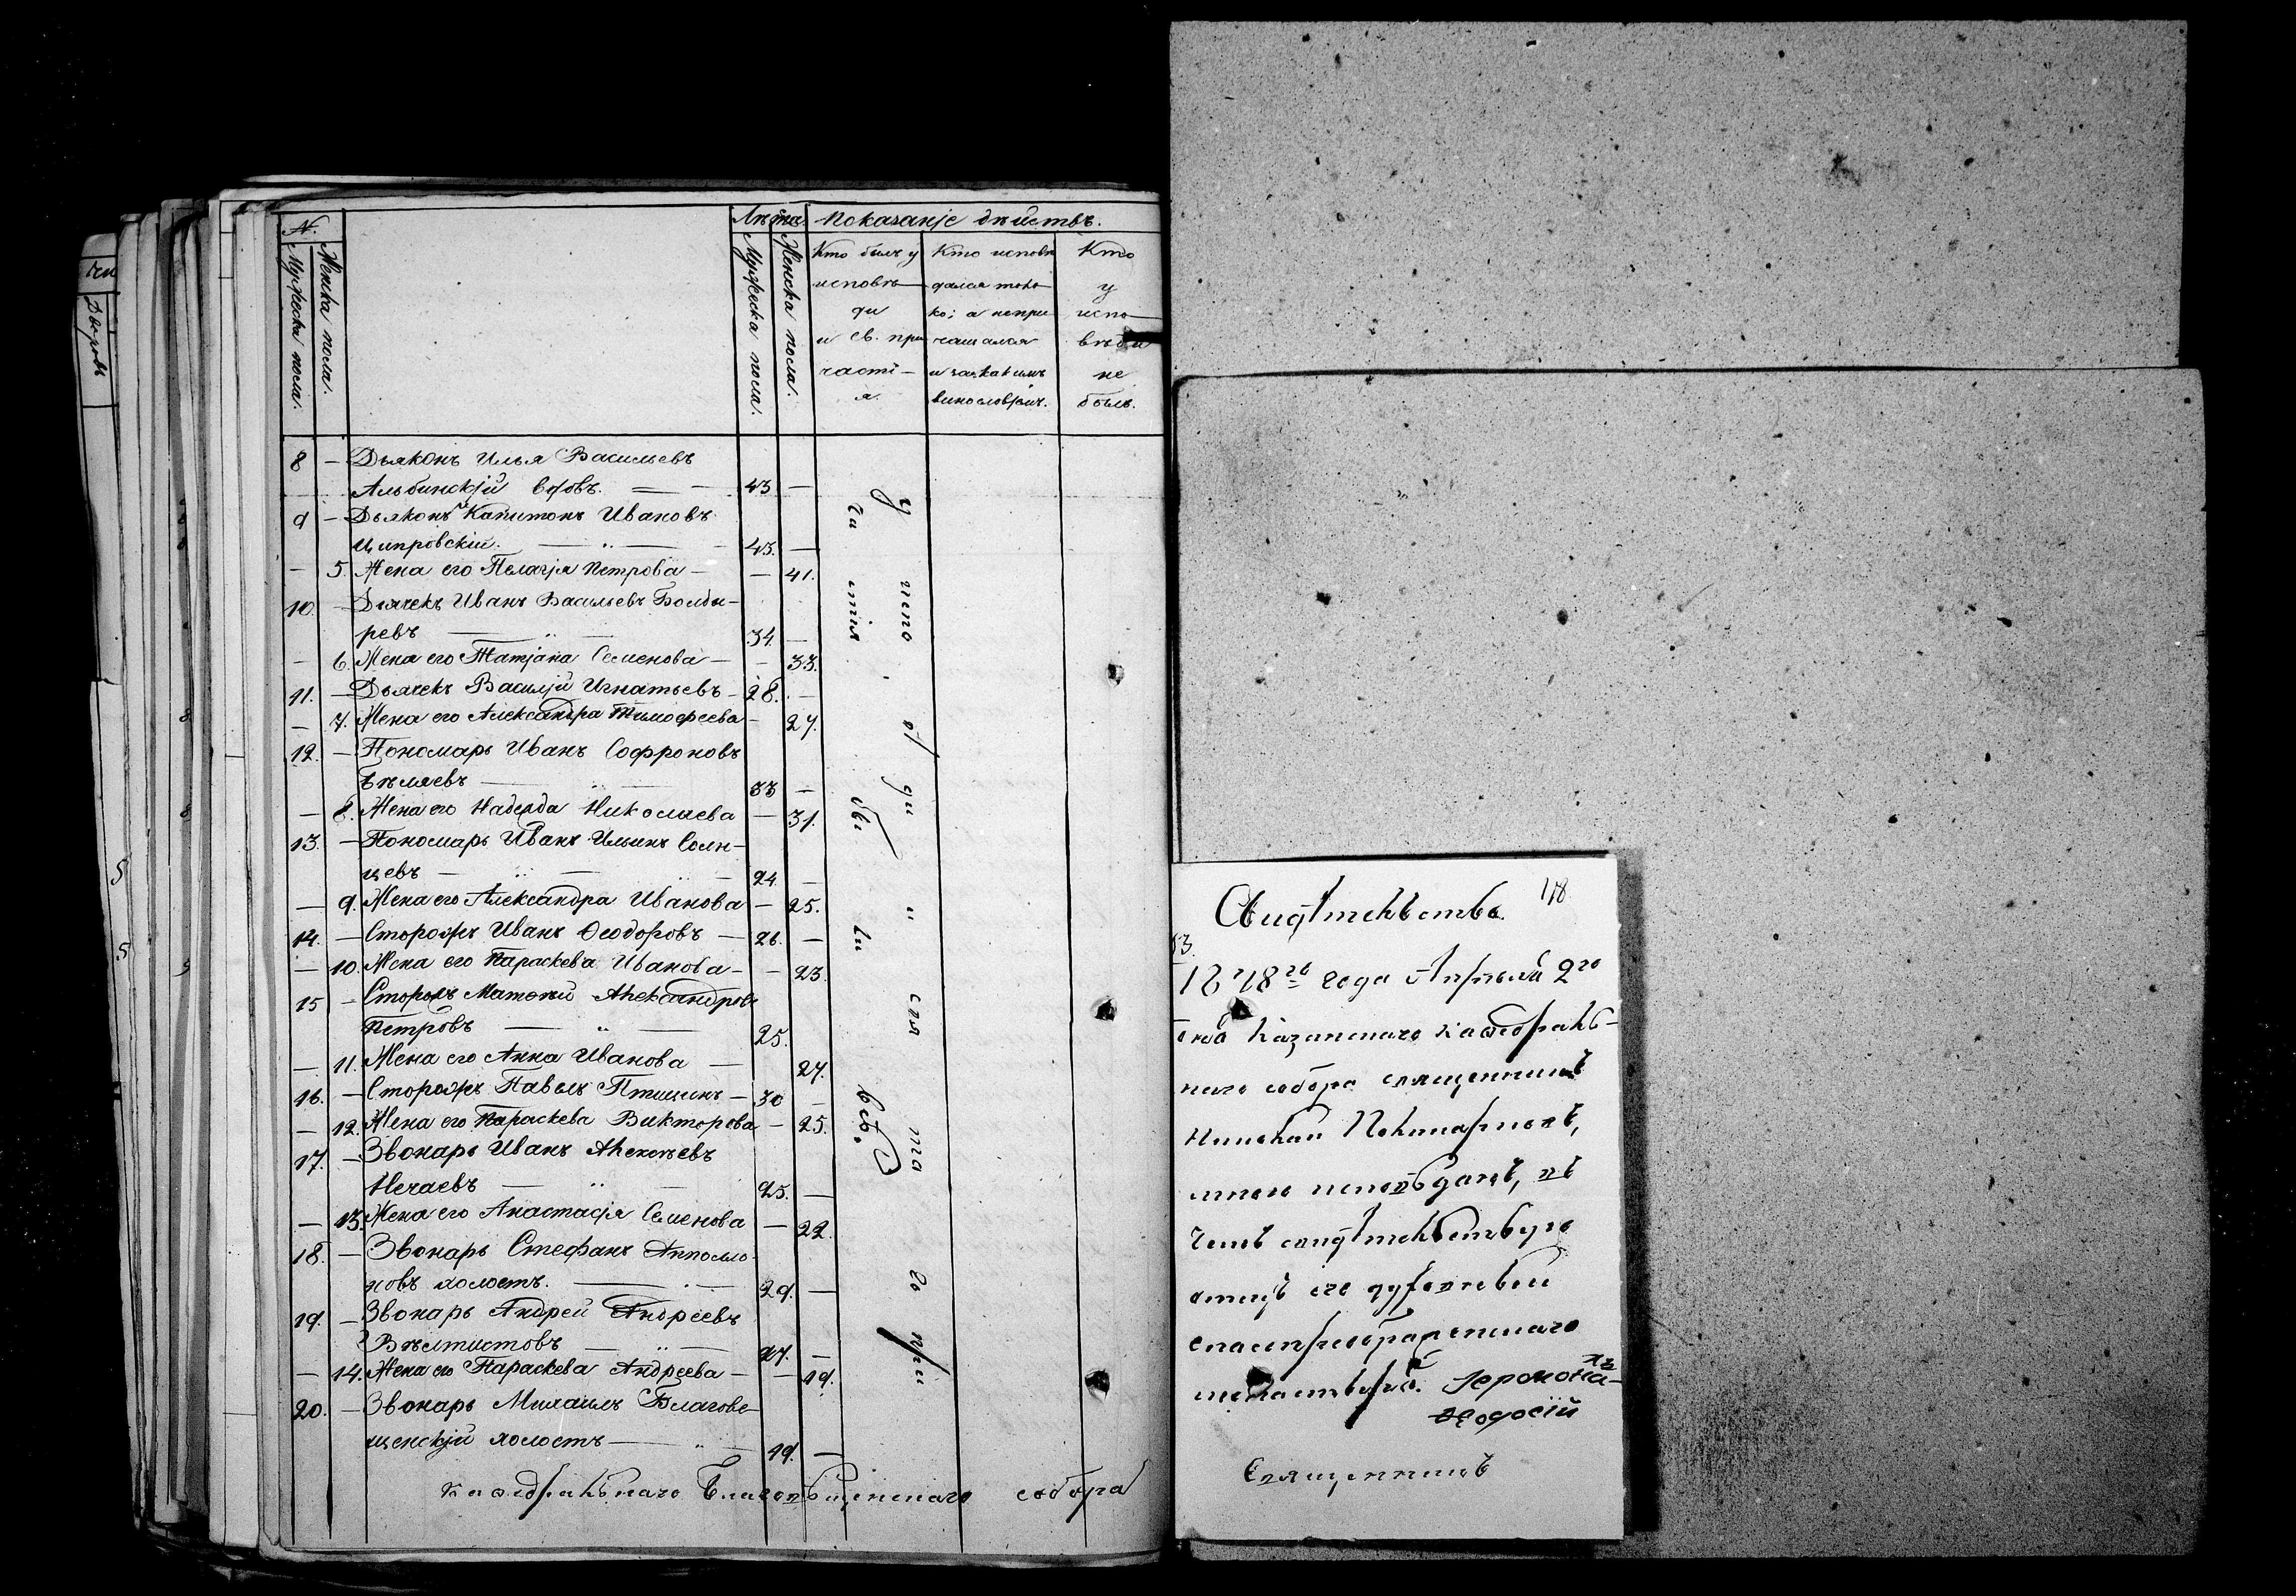 №.
Мужеска пола.
Женска пола.
Лѣта.
Мужеска пола.
Женска пола.
Показаніе дѣйствъ.
Кто былъ у исповѣди и св. причастія.
Кто исповѣдался токо; а не причащался и за какимъ винословіем.
Кто у исповѣди не былъ.
Дворовъ
8 — Дьяконъ Илья Васильевъ
Альбинскій вдовъ. — 43 —
9 — Дьяконъ Капитонъ Ивановъ
Ципровскій. — 43. —
— 5. Жена его Пелагія Петрова — — 41.
10. — Дьячекъ Иванъ Васильевъ Болды-
ревъ — 34. —
— 6. Жена его Татіана Семенова — — 33.
11. — Дьячекъ Василій Игнатьевъ — 28. —
— 7. Жена его Александра Тимофеева — 27.
12. — Пономарь Иванъ Софроновъ
Бѣляевъ — 33 —
— 8. Жена его Надежда Николаева — 31.
13. — Пономарь Иванъ Ильинъ Солн-
цевъ — 24 —
— 9. Жена его Александра Иванова — 25.
14. — Сторожъ Иванъ Ѳеодоровъ — 26. —
— 10. Жена его Параскева Иванова — — 23.
15 — Сторожъ Матвѣй Александровъ
Петровъ — 25.
— 11. Жена его Анна Иванова — 27.
16. — Сторожъ Павелъ Птицинъ — 30 —
— 12. Жена его Параскева Викторова — 25.
17. — Звонарь Иванъ Алексѣевъ
Нечаевъ — 25. —
— 13. Жена его Анастасія Семенова — 22.
18. — Звонарь Стефанъ Апполло-
новъ холостъ. — 29. —
19. — Звонарь Андрей Андреевъ
Вѣлтистовъ — 27. —
— 14. Жена его Параскева Андреева — — 19.
20. — Звонарь Михаилъ Благове-
щенскій холостъ — 19. —
у испо вѣ ди и св. та го при
ча стія
каѳедральнаго Благовѣщенскаго собора
118
Свидѣтельство.
1878го года Апрѣля 2го
дня Казанскаго каѳедраль-
наго собора священникъ
Николай
мною исповѣданъ, въ
чемъ свидѣтельствую
отецъ его духовный
Спасопреображенскаго
монастыря. Іеромона-
хъ Ѳеодосій
Священникъ